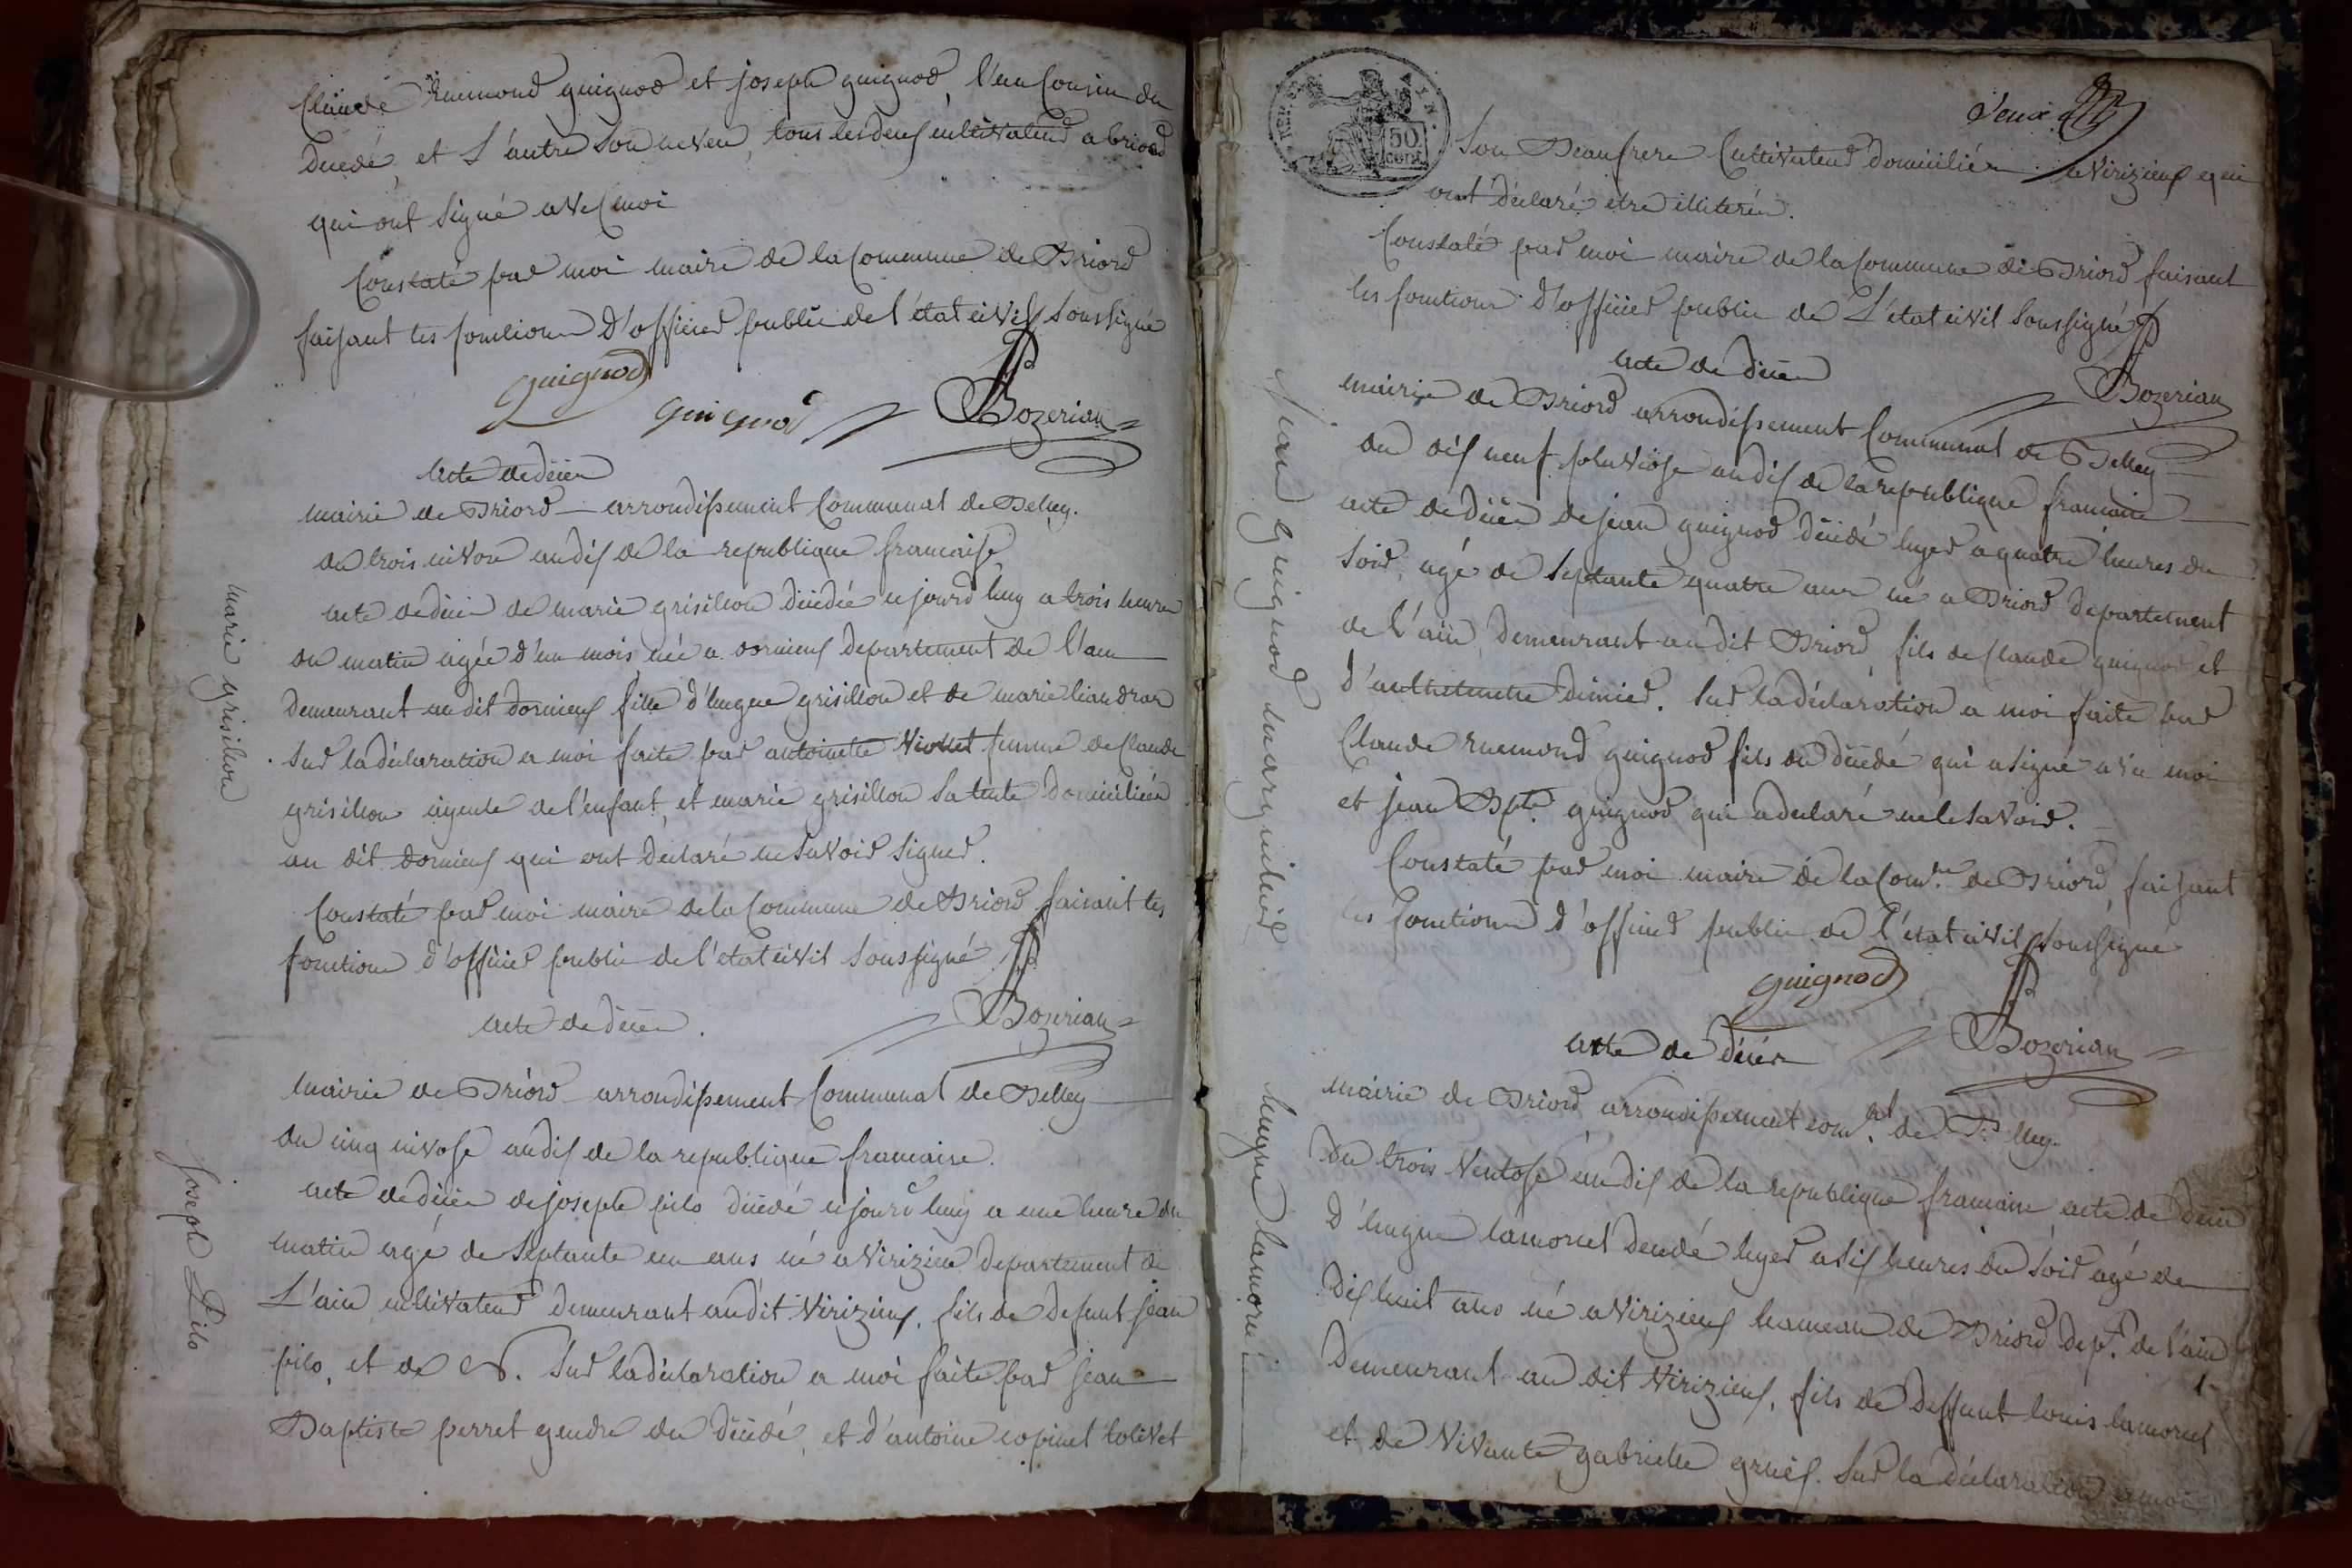 Claude Ruemond guignod et joseph guignod, l'un Cousin du
décédé, et L'autre Son neveu, tous les deux cultivateurs a briord
qui ont Signé avec moi
Constaté par moi maire de la Commune de Briord
faisant les fonctions d'officier public de l'état civil Soussigné
Guignod
Guignod
Bozerian
acte de décès
mairie de Briord arrondissement Communal de Belley.
du trois nivose an dix de la republique francaise
acte de décès de marie grisillon décédée ce jourd'huy a trois heures
du matin agée d'un mois née a dornieux departement de l'ain
demeurant au dit dornieux fille d'hugue grisillon et de marie liaudran
Sur la déclaration a moi faite par antoinette Viollet femme de Claude
grisillon ayeule de l'enfant, et marie grisillon Sa tente domiciliées
au dit dornieux qui ont déclaré ne Savoir Signer.
Constaté par moi maire de la Commune de Briord faisant les
fonctions d'officier public de l'etat civil Soussigné
Bozerian
acte de décès.
mairie de Briord arrondissement Communal de Belley
du cinq nivose an dix de la republique francaise.
acte de décès de joseph pilo décédé ce jourd'huy a une heure du
matin agé de Septante un ans né a Virizieu departement de
L'ain cultivateur demeurant audit Virizieux, fils de defunt jean
pilo, et de N. Sur la déclaration a moi faite par jean
Baptiste perret gendre du décédé, et d'antoine copinet tolivet
marie grisilion
joseph Pilo
deux
50
cent
Son Beaufrere Cultivateurs domiciliés a Virizieux qui
ont déclaré etre illiterés.
Constaté par moi maire de la Commune de Briord faisant
les fonctions d'officier public de L'état civil Soussigné
Bozerian
acte de décès
mairie de Briord arrondissement Communal de Belley
du dix neuf pluviose an dix de la republique francaise
acte de décès de jean guignod décédé hyer a quatre heures du
Soir, agé de Septante quatre ans né a Briord departement
de l'ain, demeurant au dit Briord, fils de Claude guignod et
d'anthelmette dimier. Sur la déclaration a moi faite par
Claude ruemond guignod fils du décédé qui a signé avec moi
et jean Bpte. guignod qui a declaré ne le Savoir.
Constaté par moi maire de la Comne. de Briord, faisant
les fonctions d'officier public de l'état civil Soussigné
Guignod
Bozerian
acte de décès
mairie de Briord arrondissement com.al de Belley.
Du trois Ventose an dix de la republique francaise, acte de décès
D'hugue lamoriet decedé hyer a Six heures du Soir agé de
dix huit ans né a Virizieux hameau de Briord dept. de l'ain
demeurant au dit Virizieux, fils de deffunt louis lamoriet
et de Vivante gabrielle gruex. Sur la déclaration a moi
jean guignod
hugue lamoriet